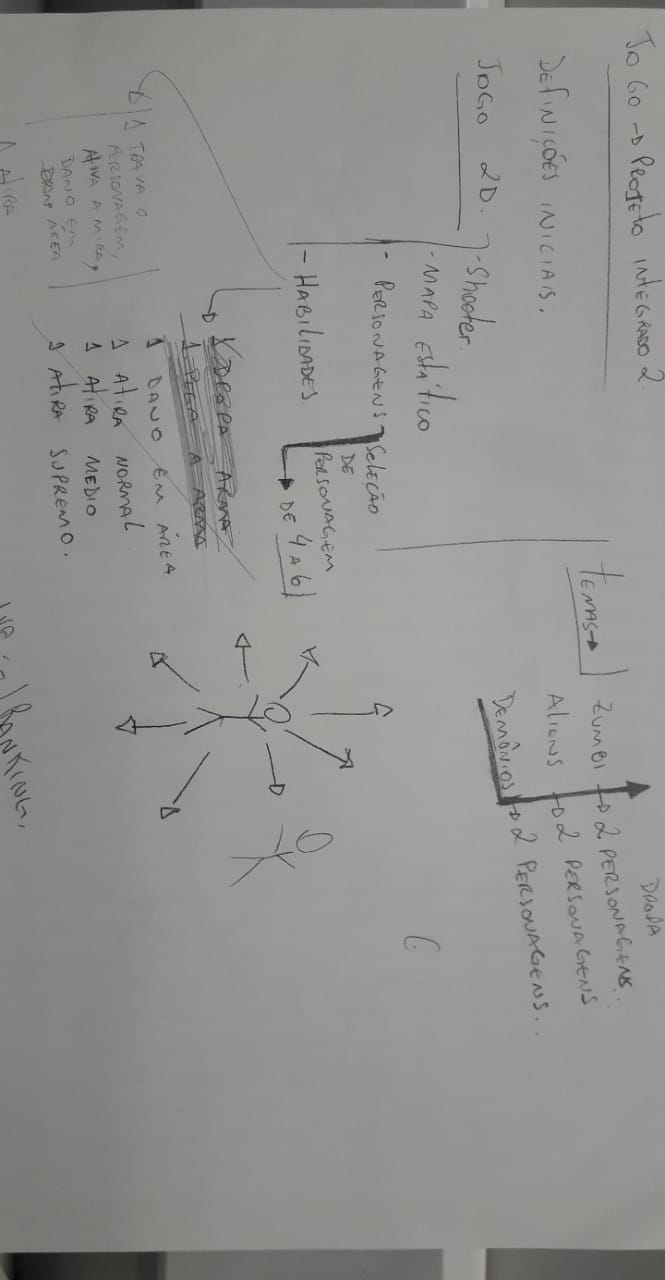 JOGO → PROJETO INTEGRADO 2.
DEFINIÇÕES INICIAIS.
JOGO 2D.
- Shooter.
- MAPA ESTÁTICO.
- PERSONAGENS
SELEÇÃO
DE
PERSONAGEM
DE 4 A 6
- HABILIDADES.
DROPA ARMA
1 PEGA A ARMA
1 DANO EM ÁREA
1 ATIRA NORMAL
1 ATIRA MEDIO
1 ATIRA SUPREMO.
1 TRAVA O
PERSONAGEM,
ATIVA A MIRA,
DANO EM
ÁREA
1 ATIRA
TEMAS→
DROPA
ZUMBI → 2 PERSONAGENS..
ALIENS → 2 PERSONAGENS
DEMÔNIOS → 2 PERSONAGENS..
RANKING.